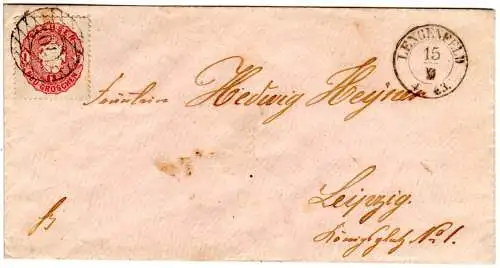 NEUGROSCHEN
LENGENFELD
15
4 23.
Fräulein Hedwig Heyner
Leipzig.
Königsplatz No 1.
fr